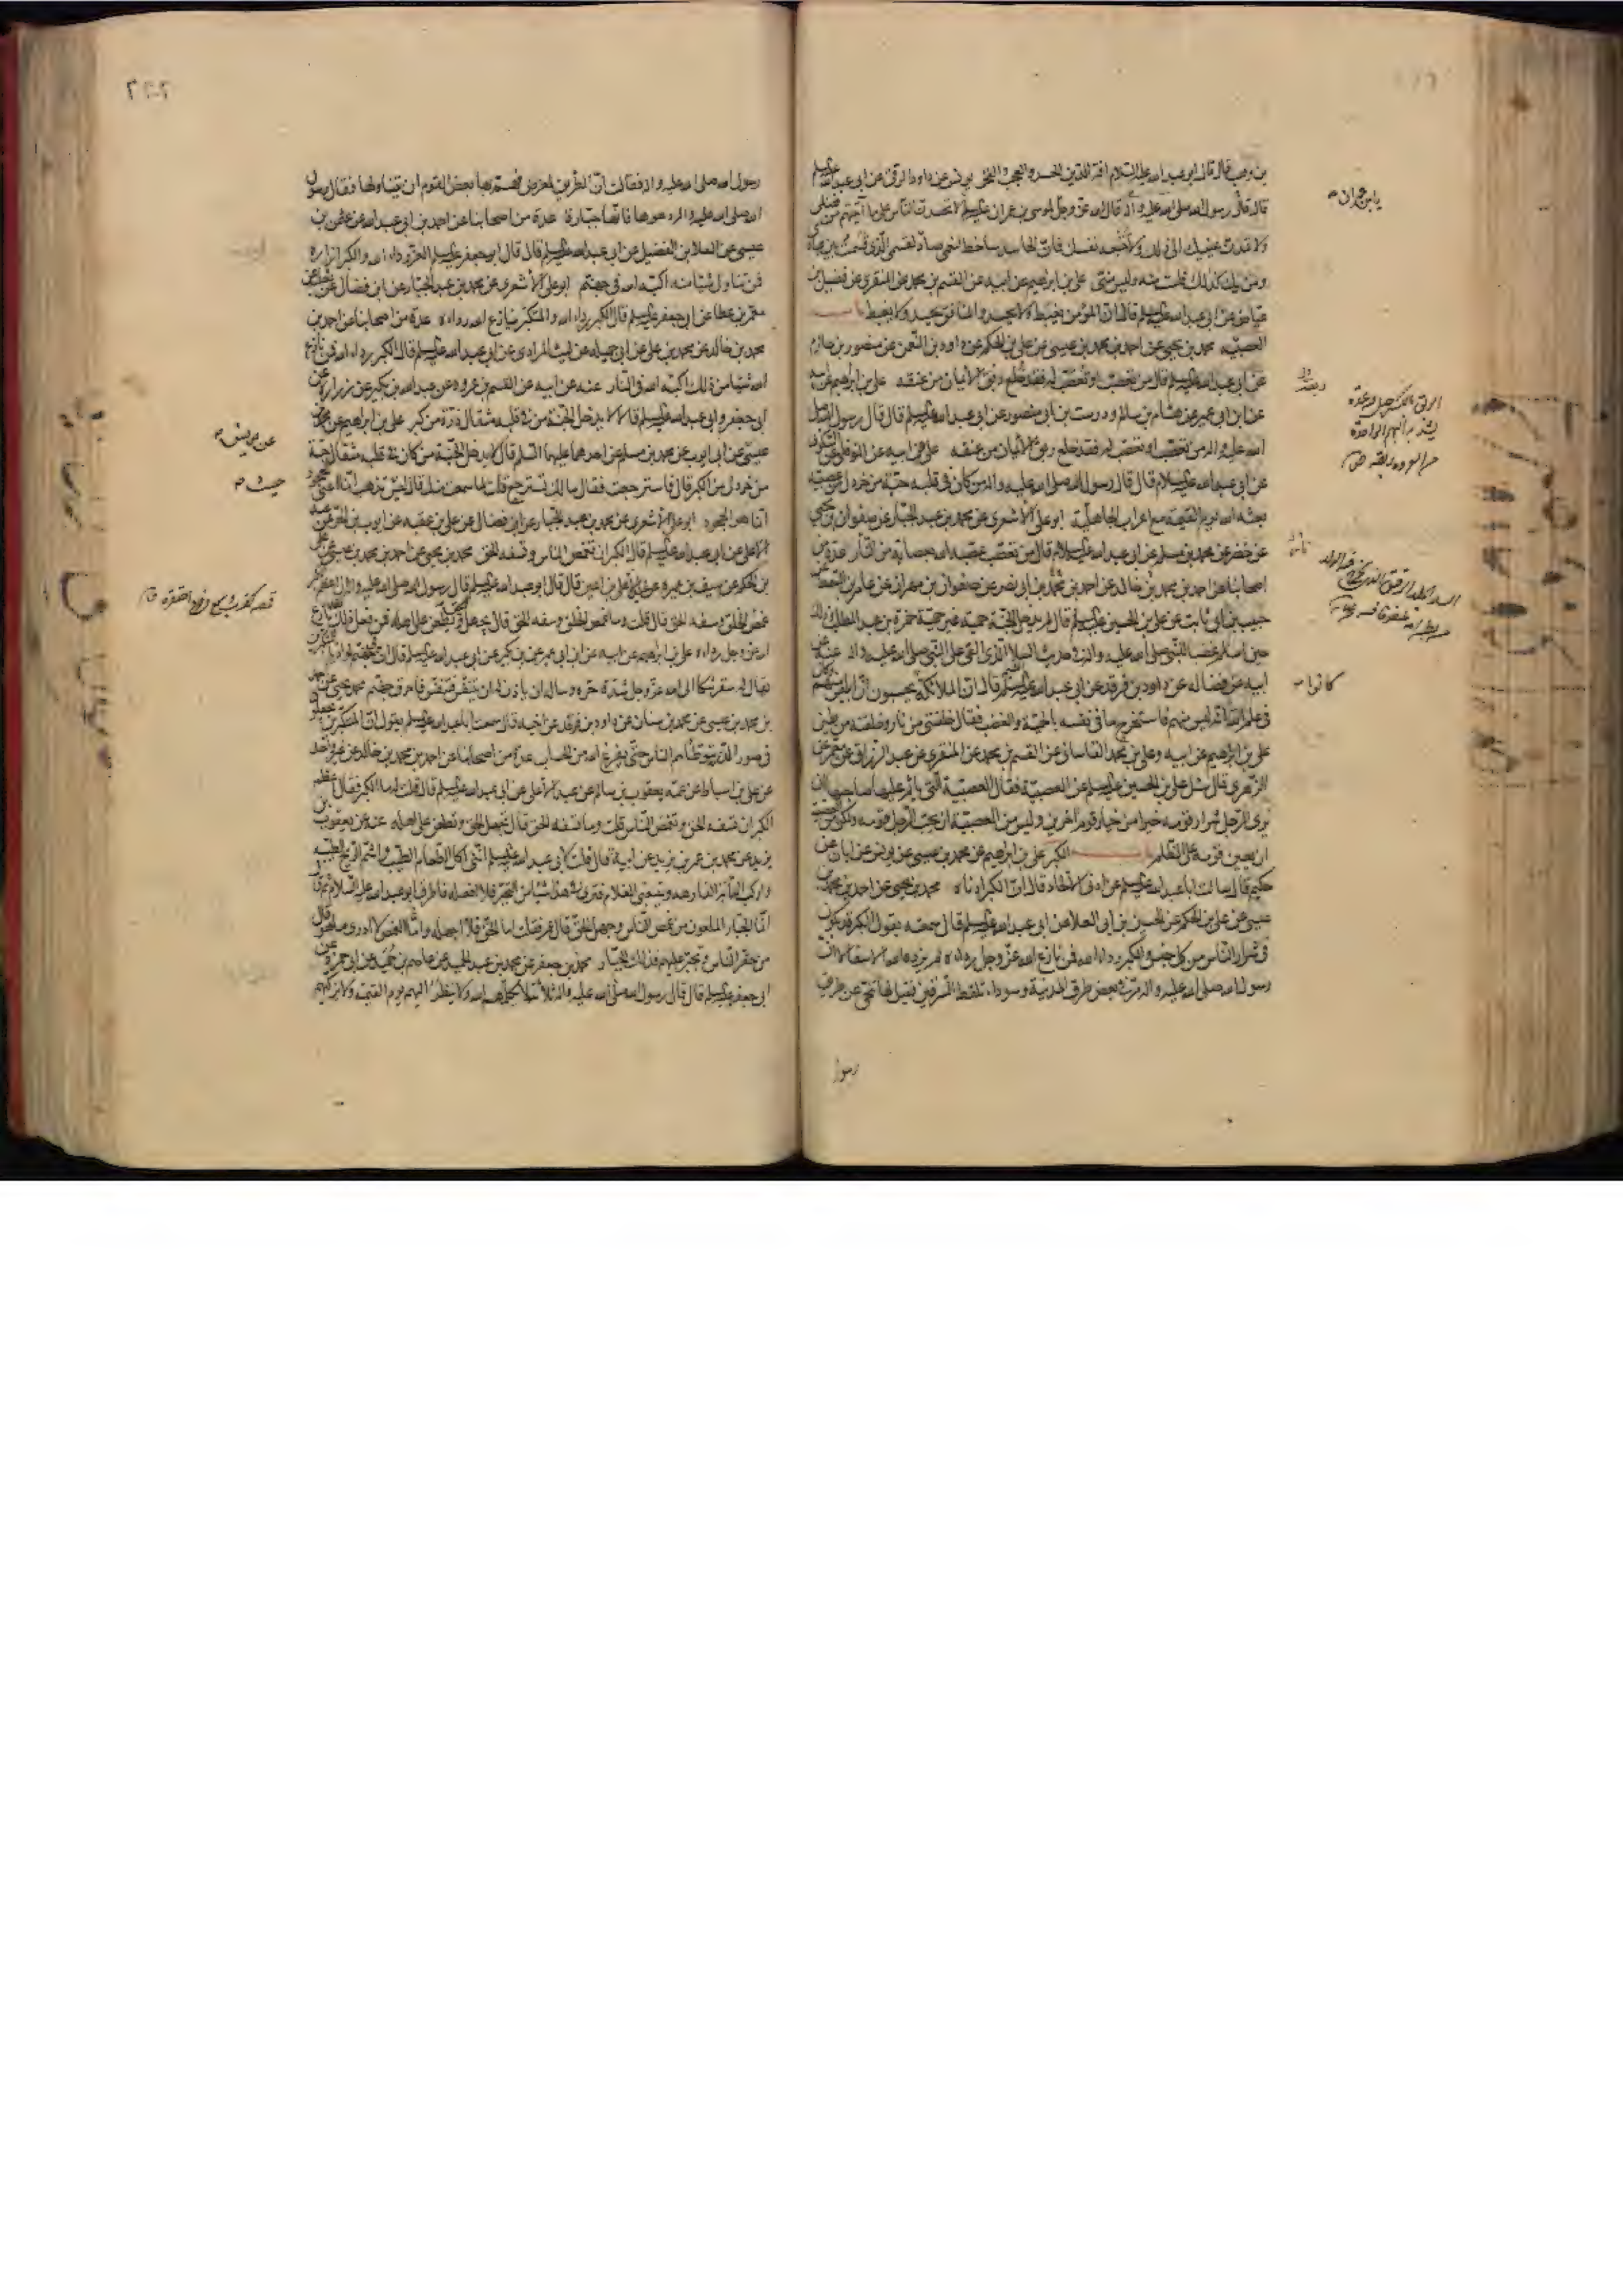 بن وهب قال قال ابو عبد الله عليه السلام افة الدين الحسد والعجب والفخر يونس عن داود الرقى عن ابى عبد الله عليه السلم
قال قال رسول الله صلى الله عليه واله قال الله عز وجل لموسى بن عمران عليه السلم لا تحسدن الناس على ما اتيتهم من فضلى
ولا تمدن عينيك الى ذلك ولا تتبعه نفسك فان الحاسد ساخط لنعمى صاد لقسمى الذى قسمت بين عبادى
ومن يك كذلك فلست منه وليس منى على بن ابرهيم عن ابيه عن القسم بن محمد عن المنقرى عن فضيل بن
عياض عن ابى عبد الله عليه السلم قال ان المؤمن يغبط ولا يحسد والمنافق يحسد ولا يغبط باب
العصبية محمد بن يحيى عن احمد بن محمد بن عيسى عن على بن الحكم عن داود بن النعمن عن منصور بن حازم
عن ابى عبد الله عليه السلم قال من تعصب او تعصب له فقد خلع ربق الايمان من عنقه على بن ابراهيم عن ابيه
عن ابن ابى عمير عن هشام بن سالم ودرست بن ابى منصور عن ابى عبد الله عليه السلم قال قال رسول الله صلى
الله عليه واله من تعصب او تعصب له فقد خلع ربق الايمان من عنقه على عن ابيه عن النوفلى عن السكونى
عن ابى عبد الله عليه السلام قال قال رسول الله صلى الله عليه واله من كان فى قلبه حبة من خردل من عصبية
بعثه الله يوم القيمة مع اعراب الجاهلية ابو على الاشعرى عن محمد بن عبد الجبار عن صفوان بن يحيى
عن خضر عن محمد بن مسلم عن ابى عبد الله عليه السلام قال من تعصب عصبه الله بعصابة من النار عدة من
اصحابنا عن احمد بن محمد بن خالد عن احمد بن محمد بن ابى نصر عن صفوان بن مهران عن عامر بن السمط عن
حبيب بن ابى ثابت عن على بن الحسين عليه السلم قال لم يدخل الجنة حمية غير حمية حمزة بن عبد المطلب وذلك
حين اسلم غضبا للنبى صلى الله عليه واله فى حديث السلا الذى القى على النبى صلى الله عليه واله عنه عن
ابيه عن فضاله عن داود بن فرقد عن ابى عبد الله عليه السلم قال ان الملائكة يحسبون ان ابليس منهم وكان
فى علم الله انه ليس منهم فاستخرج ما فى نفسه بالحمية والغضب فقال خلقتنى من نار وخلقته من طين
على بن ابراهيم عن ابيه وعلى بن محمد القاسانى عن القسم بن محمد عن المنقرى عن عبد الرزاق عن معمر عن
الزهرى قال سئل على بن الحسين عليه السلم عن العصبية فقال العصبية التى ياثم عليها صاحبها ان
يرى الرجل شرار قومه خيرا من خيار قوم اخرين وليس من العصبية ان يحب الرجل قومه ولكن من العصبية
ان يعين قومه على الظلم باب الكبر على بن ابراهيم عن محمد بن عيسى عن يونس عن ابان عن
حكيم قال سالت ابا عبد الله عليه السلم عن ادنى الالحاد قال ان الكبر ادناه محمد بن يحيى عن احمد بن محمد بن
عيسى عن على بن الحكم عن الحسين بن ابى العلا عن ابى عبد الله عليه السلم قال سمعته يقول الكبر قد يكون
فى شرار الناس من كل جنس والكبر رداء الله فمن نازع الله عز وجل رداءه لم يزده الله الا سفالا ان
رسول الله صلى الله عليه واله مر فى بعض طرق المدينة وسوداء تلقط السرقين فقيل لها تنحى عن طريق
رسول
يا بن عمران
كانوا
رسول الله صلى الله عليه واله فقالت ان الطريق لمعرض فهم بها بعض القوم ان يتناولها فقال رسول
الله صلى الله عليه واله دعوها فانها جبارة عدة من اصحابنا عن احمد بن ابى عبد الله عن عثمن بن
عيسى عن العلا بن الفضيل عن ابى عبد الله عليه السلم قال قال ابو جعفر عليه السلم العز رداء الله والكبر ازاره
فمن تناول شيئا منه اكبه الله فى جهنم ابو على الاشعرى عن محمد بن عبد الجبار عن ابن فضال عن ثعلبة عن
معمر بن عطا عن ابى جعفر عليه السلم قال الكبر رداء الله والمتكبر ينازع الله رداءه عدة من اصحابنا عن احمد بن
محمد بن خالد عن محمد بن على عن ابى جميله عن ليث المرادى عن ابى عبد الله عليه السلم قال الكبر رداء الله فمن نازع
الله شيئا من ذلك اكبه الله فى النار عنه عن ابيه عن القسم بن عروه عن عبد الله بن بكير عن زراره عن
ابى جعفر وابى عبد الله عليه السلم قالا لا يدخل الجنة من فى قلبه مثقال ذرة من كبر على بن ابراهيم عن محمد بن
عيسى عن ابى ايوب عن محمد بن مسلم عن احدهما عليهما السلم قال لا يدخل الجنة من كان فى قلبه مثقال حبة
من خردل من الكبر قال فاسترجعت فقال مالك تسترجع قلت لما سمعت منك فقال ليس تذهب انما اعنى الجحود
انما هو الجحود ابو على الاشعرى عن محمد بن عبد الجبار عن ابن فضال عن على بن عقبه عن ايوب بن الحر عن عبد
الاعلى عن ابى عبد الله عليه السلم قال الكبر ان تغمص الناس وتسفه الحق محمد بن يحيى عن احمد بن محمد بن عيسى عن على
بن الحكم عن سيف بن عميره عن عبد الاعلى بن اعين قال قال ابو عبد الله عليه السلم قال رسول الله صلى الله عليه واله ان اعظم الكبر
غمص الخلق وسفه الحق قال قلت وما غمص الخلق وسفه الحق قال يجهل الحق ويطعن على اهله فمن فعل ذلك فقد نازع
الله عز وجل رداءه على بن ابراهيم عن ابيه عن ابن ابى عمير عن بن بكير عن ابى عبد الله عليه السلم قال ان فى جهنم لواديا للمتكبرين
يقال له سقر شكا الى الله عز وجل شدة حره وساله ان ياذن له ان يتنفس فتنفس فاحرق جهنم محمد بن يحيى عن احمد
بن محمد بن عيسى عن محمد بن سنان عن داود بن فرقد عن اخيه قال سمعت ابا عبد الله عليه السلم يقول ان المتكبرين يجعلون
فى صور الذر يتوطاهم الناس حتى يفرغ الله من الحساب عدة من اصحابنا عن احمد بن محمد بن خالد عن غير واحد
عن على بن اسباط عن عمه يعقوب بن سالم عن عبد الاعلى عن ابى عبد الله عليه السلم قال قلت له ما الكبر فقال اعظم
الكبر ان تسفه الحق وتغمص الناس قلت وما تسفه الحق قال تجهل الحق وتطعن على اهله عنه عن يعقوب بن
يزيد عن محمد بن عمر بن يزيد عن ابيه قال قلت لابى عبد الله عليه السلم اننى اكل الطعام الطيب واشم الريح الطيبة
واركب الدابة الفارهه ويتبعنى الغلام فترى فى هذا شيئا من التجبر فلا افعله فاطرق ابو عبد الله عليه السلام ثم قال
انما الجبار الملعون من غمص الناس وجهل الحق قال عمر فقلت اما الحق فلا اجهله واما الغمص لا ادرى ما هو قال
من حقر الناس وتجبر عليهم فذلك الجبار محمد بن جعفر عن محمد بن عبد الحميد عن عاصم بن حميد عن ابى حمزة عن
ابى جعفر عليه السلم قال قال رسول الله صلى الله عليه واله ثلاثة لا يكلمهم الله ولا ينظر اليهم يوم القيمة ولا يزكيهم
عن يونس
حيث